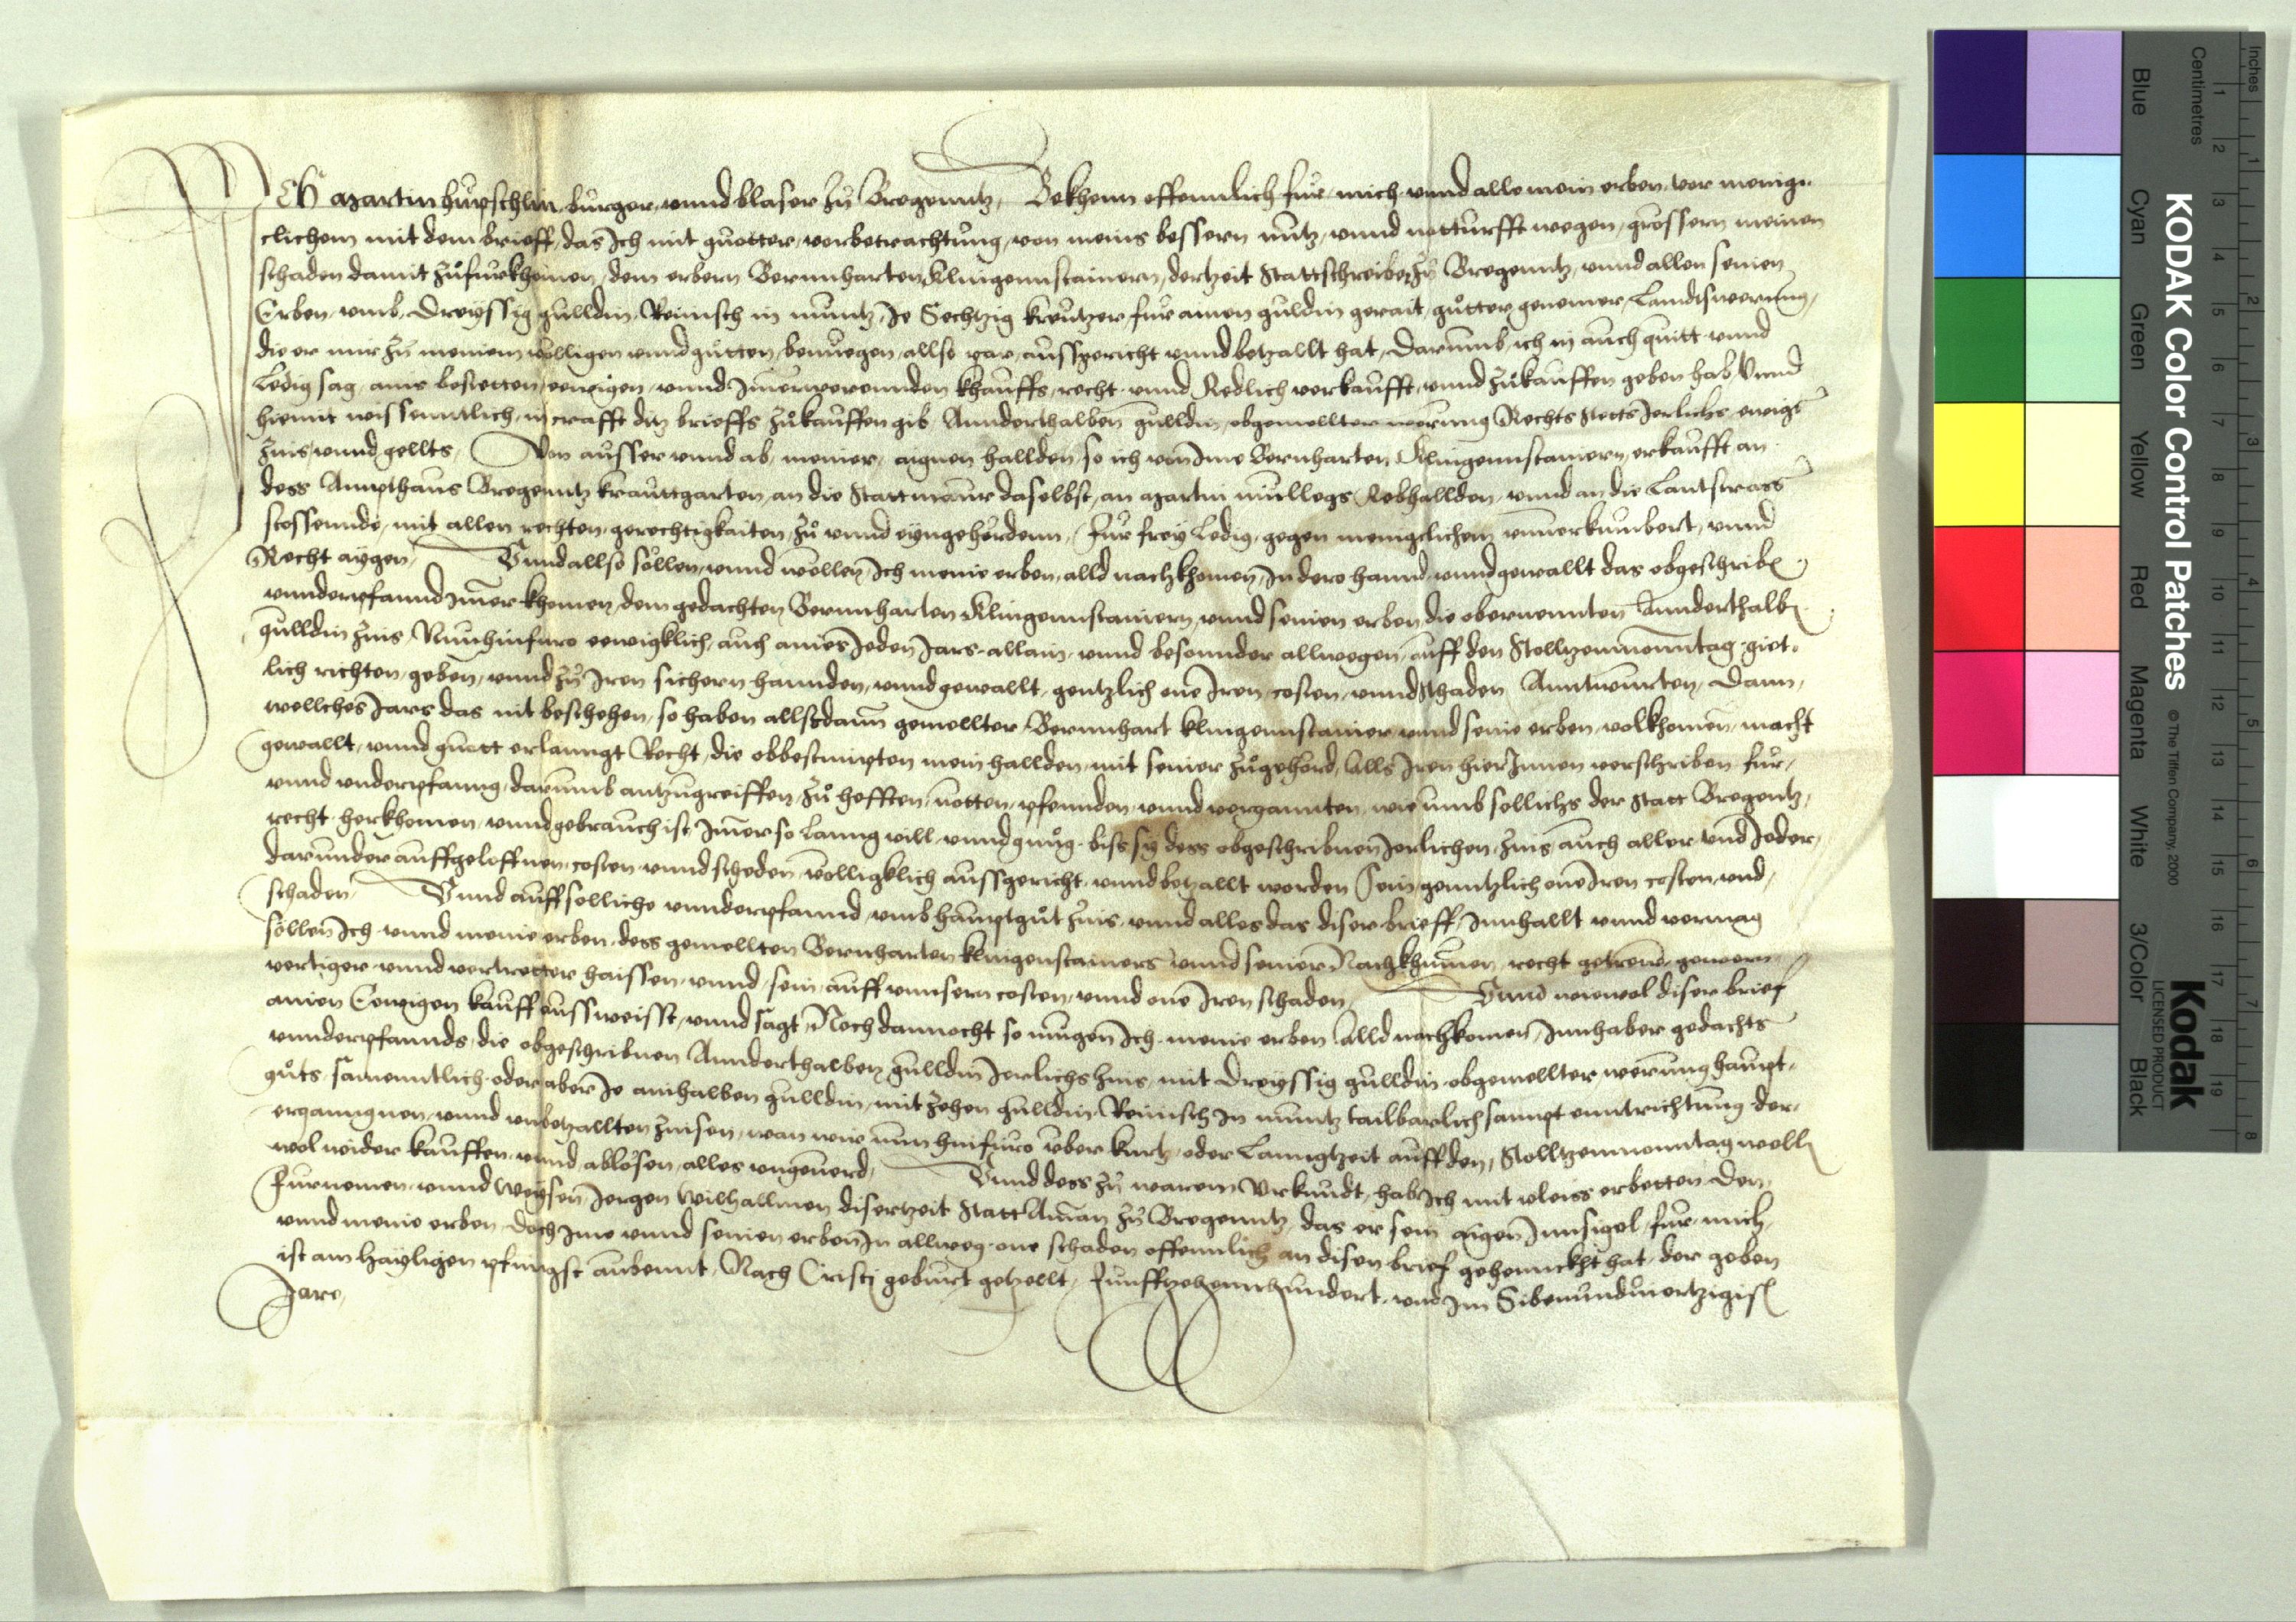 Ich Martin hüpschlin burger vnnd blaser zů Bregenntz, Bekhenn offennlich für mich vnnd alle mein erben vor menigc-
clichem mit dem brieff, das Ich mit guotter vorbetrachtung, von meins bessern nutz, vnnd notturfft wegen, grossern meinen
schaden damit zůfürkhomen, dem erbern Bernnharten Klingennstainern, dertzeit Stattschreiber zů Bregenntz, vnnd allen seinen
Erben, vmb, Dreyssig gulldin, Reinisch in muntz, Je Sechtzig kreutzer für ainen guldin gerait, gůtter genemer, Lanndiswerung,
die er mir zů meinem völligen vnnd gůtten, benuegen, allso par, aussgericht vnnd betzallt hat, Darumb, ich in auch quitt vnnd
Ledig sag, ains bestetten, eewigen, vnnd Imerwerennden khauffs, recht vnnd Redlich verkaufft, vnnd zůkauffen geben hab Vnnd
hiemit wissenntlich, in crafft ditz brieffs zůkauffen gib Annderthalben gulldin, obgemellter werung Rechts Stetts Jerlichs ewigs
zins, vnnd gellts, Von ausser vnnd ab, meiner, aignen hallden, so ich von Ime Bernharten Klingennstainern, erkaufft an
dess Ampthaus Bregenntz krauttgarten, an die Stattmaur daselbst, an Martin müllegs Rebhallden, vnnd an die Lantstrass
stossennde, mit allen rechten, gerechtigkaiten, zů vnnd eyngehördenn, Für frey Ledig, gegen menigclichem vnnerkumbert, vnnd
Recht aygen, Vnnd allso söllen, vnnd wöllen, Ich meine erben, alld nachkhomen, In dero hannd, vnnd gewallt das obgeschriben
vnnderpfannd Imer khomen, dem gedachten Bernnharten Klingennstainern, vnnd seinen erben die obernennten Annderthalben
gulldin zins, Nun hinfuro eewigklich, auch aines Jeden Jars, allain, vnnd besonnder allwegen, auff den Stolltzenmonntag, giet-
lich richten, geben, vnnd zů Iren sichern hannden, vnnd gewallt, gentzlich one Iren, costen, vnnd schaden Anntwurten, Dann,
wellches Jars das nit beschehen, so haben allssdann gemellter Bernnhart klingennstainer vnnd seine erben, volkhomen, macht
gewallt, vnnd guett erlanngt Recht, die obbestimpten mein hallden, mit seiner zůgehörd, Alls Iren hier Innen verschriben für,
vnnd vnderpfanng, darumb antzugreiffen, zů hefften, nötten, pfennden, vnnd verganten, wie vmb söllichs der Statt Bregentz,
recht herkhomen, vnnd gebrauch ist, Imer so lanng vill, vnnd gnůg, biss sy dess obgeschribnen Jerlichen, zins auch aller vnd Jeder,
darunder auffgeloffnen, costen vnnd scheden, völligklich aussgericht vnnd betzallt worden Sein, genntzlich one Iren costen, vnd,
schaden, Vnnd auff solliche vnnderpfannd, vmb hauptgůt zins, vnnd alles das diser brieff, Innhallt vnnd vermag
söllen Ich vnnd meine erben, dess gemellten Bernharten klingenstainers vnnd seiner Nachkhumen, recht getrew, geweren
vertiger vnnd vertretter haissen, vnnd, sein, auff vnnsern costen, vnnd one Iren schaden, Vnnd wiewol diser brief
ainen Eewigen kauff aussweisst, vnnd sagt, Noch dannocht so mügen Ich meine erben Alld nachkomen, Innhaber gedachts
vnnderpfannds, die obgeschribnen Annderthalben gulldin Jerlichs zins, mit Dreyssig gulldin obgemellter, werung haupt-
gůts, samenntlich, oder aber Je ainhalben gulldin, mit zehen gulldin Reinisch in muntz tailbarlich sampt enntrichtung der,
erganngnen, vnnd vnbetzallten zinsen, wan wir nun hinfuro über kurtz, oder Lanngtzeit auff den, Stolltzenmonntag wöllen
wol wider kauffen, vnnd ablösen, alles vngeuerd, Vnnd dess zů warem Vrkundt, hab Ich mit vleiss erbetten Den,
Fürnemen, vnnd Weysen Jergen Wilhallmen disertzeit Statt Aman zů Bregenntz, das er sein aigen Innsigel, für mich,
vnnd meine erben, Doch Ime vnnd seinen erben In allweg one schaden offennlich an disen brief gehennckht hat, der geben
ist am hayligen pfingst aubennt, Nach Cristj geburt getzellt, Funfftzehennhundert, vnd Im Sibenundviertzigist
Jare,
KODAK Color Control Patches
© The Tiffen Company, 2000
Kodak
LICENSED PRODUCT
Blue Cyan Green Yellow Red Magenta White 3/Color Black
Inches 1 2 3 4 5 6 7 8
Centimetres 1 2 3 4 5 6 7 8 9 10 11 12 13 14 15 16 17 18 19